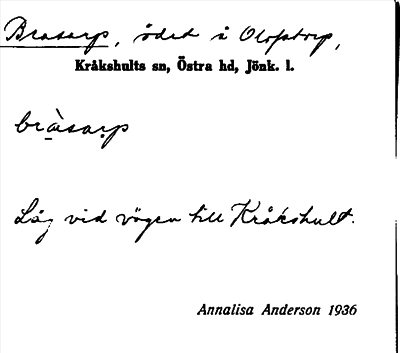 Brasarp, ödet å Olofstorp,
Kråkshults sn, Östra hd, Jönk. l.
bràsarp
Låg vid vägen till Kråkshult.
Annalisa Anderson 1936